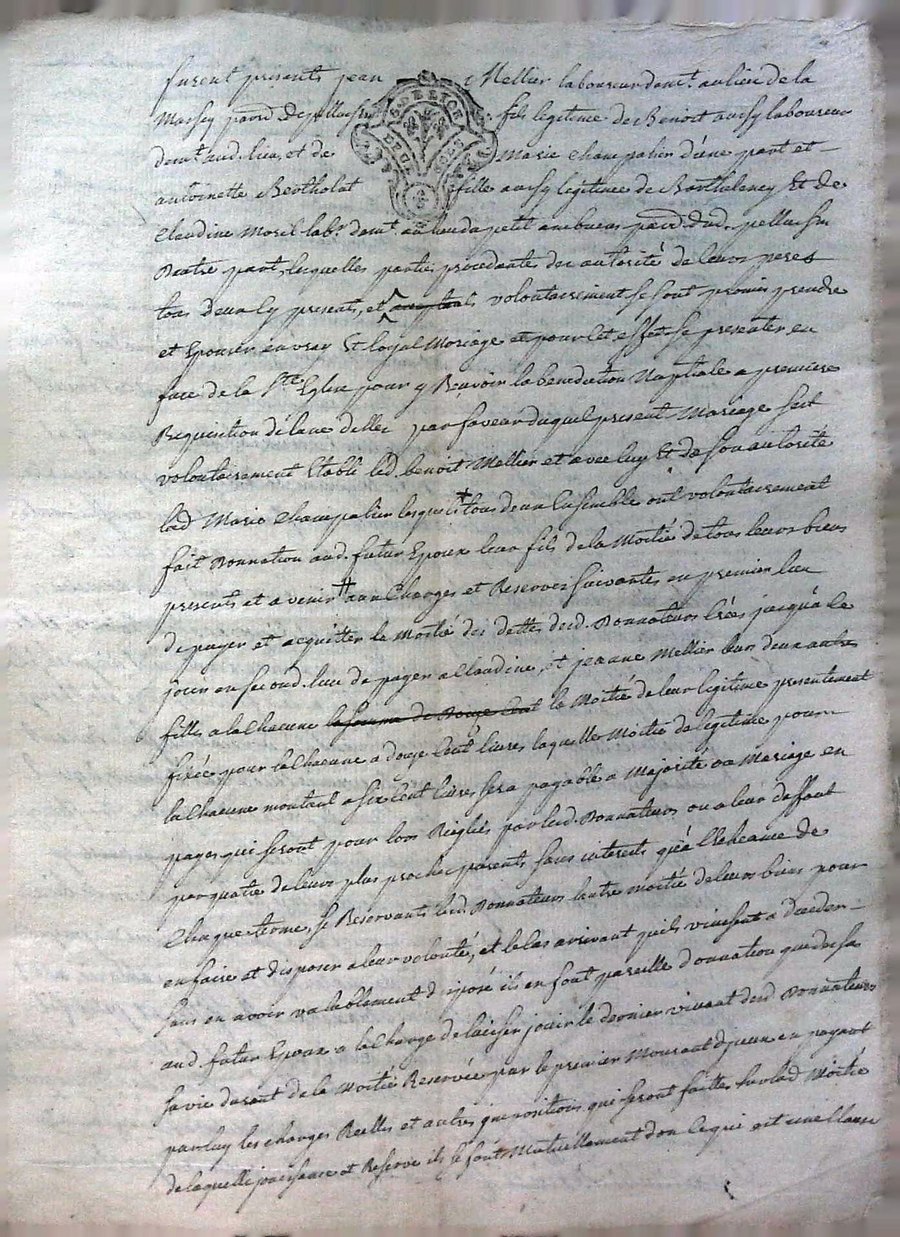 furent presents jean Mellier laboureur demt. au lieu de la
Massey parr. de pelluss fils legitime de Benoit aussy laboureur
demt. aud. lieu, et de Marie Champalier d'une part et
antoinette Bertholat fille aussy legitime de Barthelemy Et de
Claudine Morel labr. demt. au lieu du petit parr. dud. pellussin
Dautre part, lesquelles parties procedantes de autorité de leurs peres
tous deux Cy presents, et volontairement se sont promis prendre
et Epouser en vray Et loyal Mariage et pour Cet effet se presenter en
face de la Ste. Eglise pour y Reçevoir la benediction Nuptiale a premiere
Requisition de lune delles par faveur duquel present Mariage sest
volontairement Etabli led. benoit Mellier et avec luy Et de son autorité
lad Marie Champalier lesquels tous deux Ensemble ont volontairement
fait Donnation aud. futur Epoux leur fils de la Moitié de tous leurs biens
presents et a venir aux Charges et Reserves suivantes en premier lieu
de payer et acquitter la Moitié des dettes desd. Donnateurs Créés jusqu'à Ce
jour en second. lieu de payer a Claudine, et jeanne Mellier leurs deux autres
filles a la Chacune la somme de Douze Cent la Moitié de leur legitime presentement
fixée pour la Chacune a douze Cent livres laquelle Moitié de legitime pour
la Chacune montant a six Cent livres sera payable a Majorité ou Mariage en
payes qui seront pour lors Réglés par lesd. Donnateurs ou a leur deffaut
par quatre de leurs plus proches parents sans interets qu'a l'Echeance de
Chaque terme, se Reservants lesd Donnateurs lautre moitié de leurs biens pour
en faire et disposer a leur volonté, et le Cas arrivant qu'ils vinssent a deceder
sans en avoir valablement disposé ils en font pareille donnation que dessus
aud. futur Epoux a la Charge de laisser jouir le dernier vivant desd Donnateurs
sa vie durant de la Moitié Reservée par le premier Mourant en payant
par luy les charges Réelles et autres impositions qui seront faites sur lad Moitié
de laquelle jouissance et Reserve ils se font Mutuellement don Ce qui est une Clause